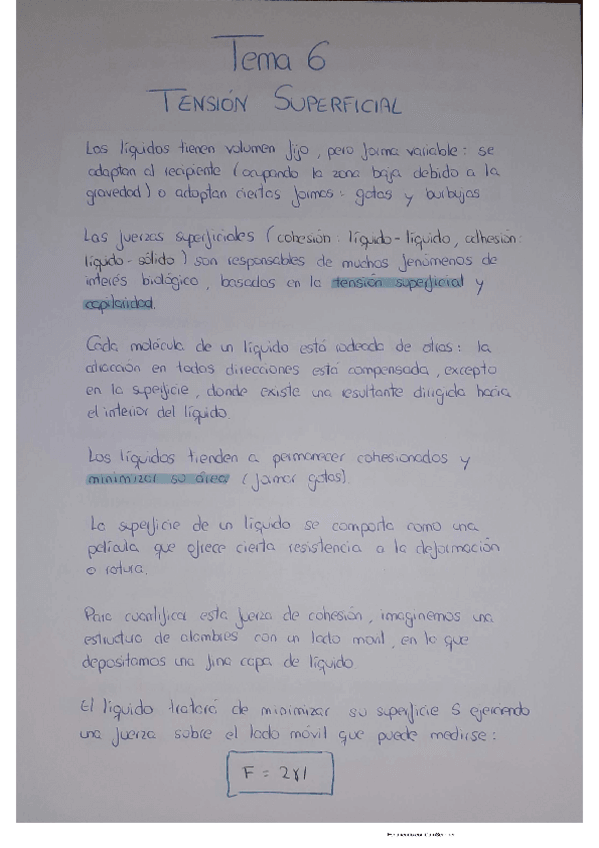 Tema 6
TENSIÓN SUPERFICIAL
Los líquidos tienen volumen fijo, pero forma variable: se
adaptan al recipiente (ocupando la zona baja debido a la
gravedad) o adoptan ciertas formas: gotas y burbujas
Las fuerzas superficiales (cohesión: líquido-líquido, adhesión:
líquido-sólido) son responsables de muchos fenómenos de
interés biológico, basados en la tensión superficial y
capilaridad.
Cada molécula de un líquido está rodeada de otras: la
atracción en todas direcciones está compensada, excepto
en la superficie, donde existe una resultante dirigida hacia
el interior del líquido.
Los líquidos tienden a permanecer cohesionados y
minimizar su área (formar gotas).
La superficie de un líquido se comporta como una
película que ofrece cierta resistencia a la deformación
o rotura.
Para cuantificar esta fuerza de cohesión, imaginemos una
estructura de alambres con un lado movil, en lo que
depositamos una fina capa de líquido
El líquido tratará de minimizar su superficie S ejerciendo
una fuerza sobre el lado móvil que puede medirse:
F = 2γl